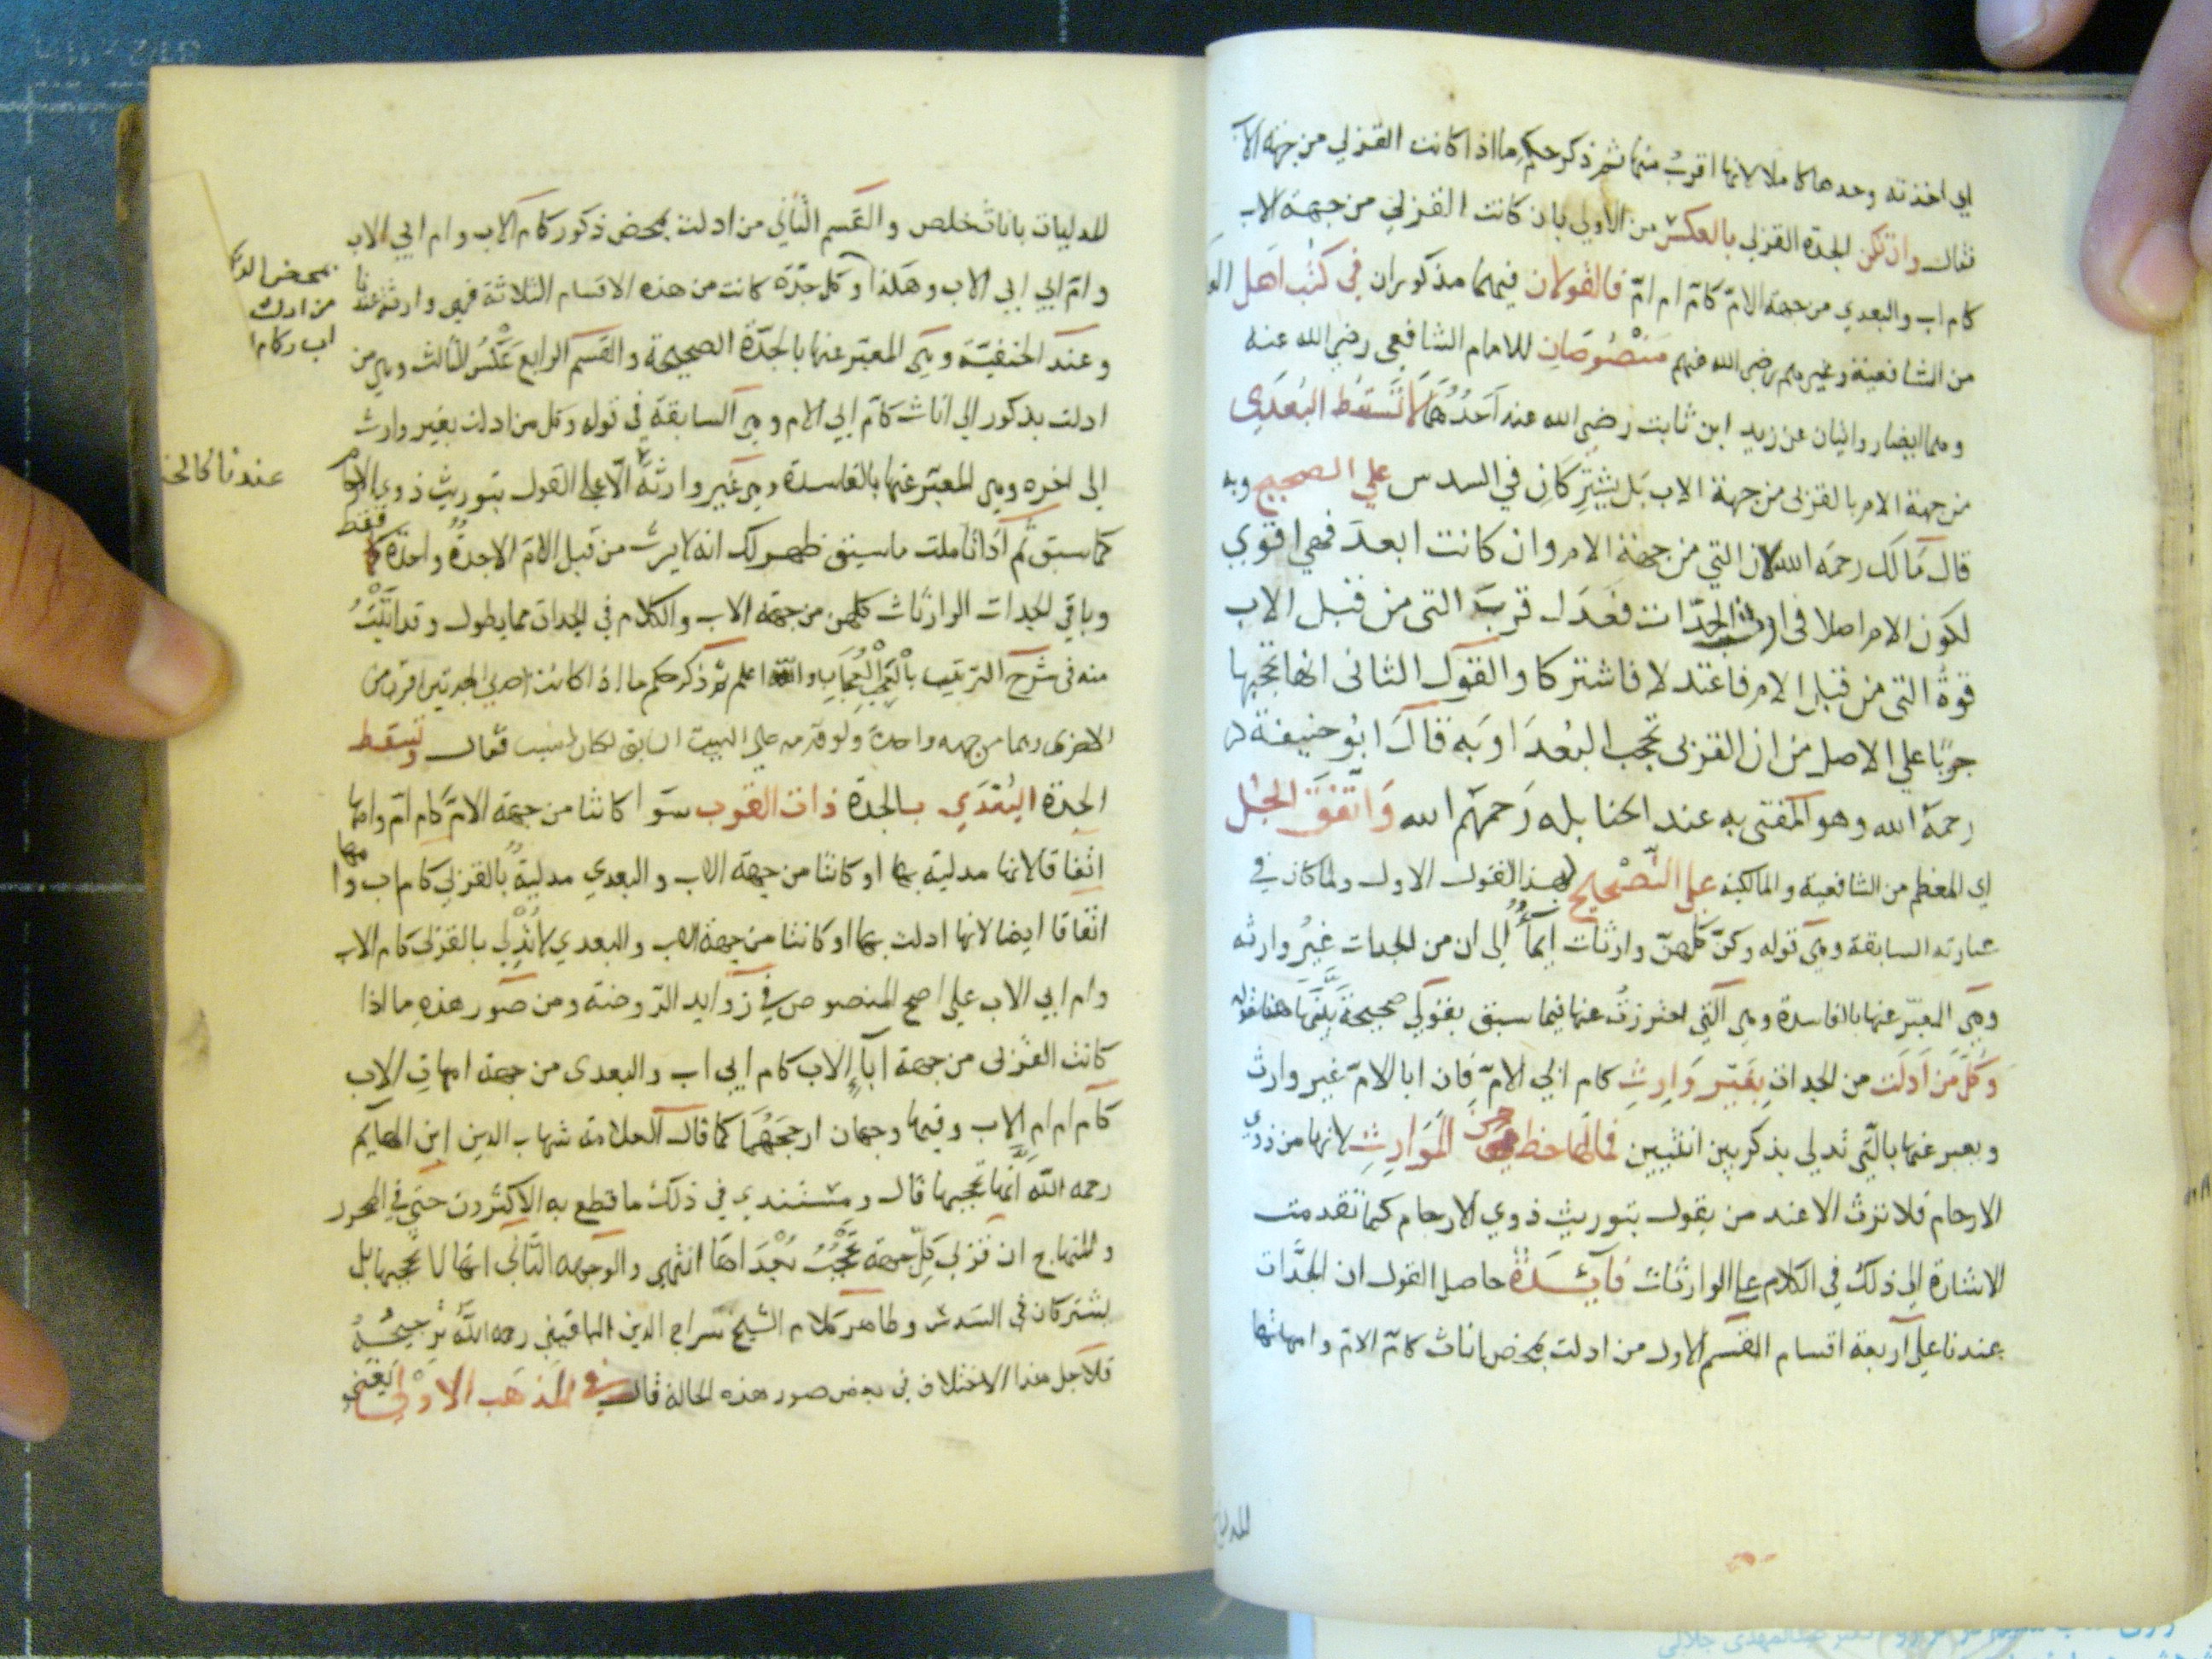 اي اخذته وحدها كاملا لانها اقرب منها ثم ذكر حكم ما اذا كانت القربي من جهة الا
فقال وان تكن الجدة القربي بالعكس من الاولي بان كانت القربي من جهة الاب
كام اب والبعدي من جهة الام كام ام ام فالقولان فيهما مذكوران في كتب اهل
من الشافعية وغيرهم رضي الله عنهم منصوصان للامام الشافعي رضي الله عنه
وهما ايضا روايتان عن زيد ابن ثابت رضي الله عنه احدهما لا تسقط البعدي
من جهة الام بالقربى من جهة الاب بل يشتركان في السدس علي الصحيح وبه
قال مالك رحمه الله لان التي من جهة الام وان كانت ابعد فهي اقوي
لكون الام اصلا في ارث الجدات فعدل قرب التى من قبل الاب
قوة التى من قبل الام فاعتدلا فاشتركا والقول الثانى انها تحجبها
جريا على الاصل من ان القربى تحجب البعدا وبه قال ابو حنيفة
رحمة الله وهو المفتى به عند الحنابله رحمهم الله واتفق الجل
اي المعظم من الشافعية والمالكية على التصحيح لهذا القول الاول ولما كان في
عبارته السابقة وهي قوله وكن كلهن وارثات ايماء الى ان من الجدات غير وارثه
وهي المعبر عنها بالفاسدة وهي التي احترزت عنها فيما سبق بقولي صحيحة بينها هنا بقوله
وكل من ادلت من الجدات بغير وارث كام ابي الام فان ابا الام غير وارث
ويعبر عنها بالتي تدلي بذكر بين انثيين فما لها حظ من الموارث لانها من ذوي
الارحام فلا ترث الا عند من يقول بتوريث ذوي الارحام كما تقدمت
الاشارة الى ذلك في الكلام على الوارثات فايدة حاصل القول ان الجدات
عندنا على اربعة اقسام القسم الاول من ادلت بمحض اناث كام الام وامهاتها
للمدليات
للمدليات باناث خلص والقسم الثاني من ادلت بمحض ذكور كام الاب وام ابي الاب
وام ابي ابي الاب وهكذا وكل جدة كانت من هذه الاقسام الثلاثة فهي وارثة عندنا
وعند الحنفية وهي المعبر عنها بالجدة الصحيحة والقسم الرابع عكس الثالث وهي من
ادلت بذكور الي اناث كام ابي الام وهي السابقة في قوله وكل من ادلت بغير وارث
الى اخره وهي المعبر عنها بالفاسدة وهي غير وارثة الا على القول بتوريث ذوي الارحام
كما سبق ثم اذا تاملت ما سبق ظهر لك انه لا يرث من قبل الام الا جدة واحدة فقط
وباقي الجدات الوارثات كلهن من جهة الاب والكلام في الجدات مما يطول وقد اتيت
منه فى شرح الترتيب بالعجب العجاب والله اعلم ثم ذكر حكم ما اذا كانت احدي الجدتين اقرب من
الاخرى وهما من جهه واحدة ولو قدمه على البيت السابق لكان انسب فقال وتسقط
الجدة البعدي بالجدة ذات القرب سوا كانتا من جهة الام كام ام وامها
اتفاقا لانها مدلية بها او كانتا من جهة الاب والبعدي مدلية بالقربي كام اب وامها
اتفاقا ايضا لانها ادلت بها او كانتا من جهة الاب والبعدي لا تدلي بالقربى كام الاب
وام ابي الاب على اصح المنصوص في زوايد الروضة ومن صور هذه ما اذا
كانت القربى من جهة اباء الاب كام ابي اب والبعدى من جهة امهات الاب
كام ام ام الاب وفيها وجهان ارجحهما كما قال العلامة شهاب الدين ابن الهايم
رحمه الله انها تحجبها قال ومستندي في ذلك ما قطع به الاكثرون حتي في المحرر
والمنهاج ان قربي كل جهة تحجب بعداها انتهي والوجه الثاني انها لا تحجبها بل
يشتركان في السدس وظاهر كلام الشيخ سراج الدين البلقيني رحمه الله ترجيحه
فلاجل هذا الاختلاف في بعض صور هذه الحالة قال في المذهب الاولى يعني
بمحض
من ادلت
عندنا